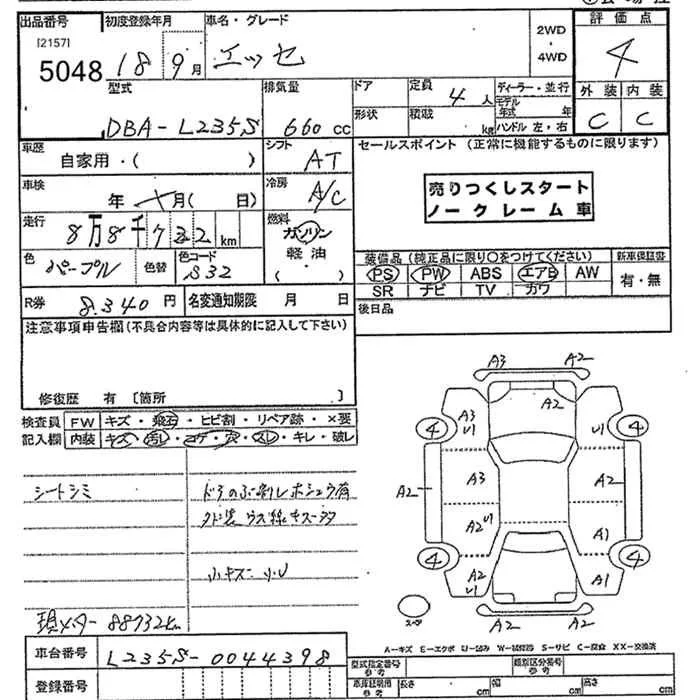 出品番号 初度登録年月 車名・グレード 2WD・4WD 評価点
[2157]
5048 18 9月 エッセ 4
型式 排気量 ドア 定員 4人 ディーラー・並行 外装 内装
DBA-L235S 660cc 形状 積載 kg モデル年式 年 ハンドル 左・右 C C
車歴 自家用・( ) シフト AT セールスポイント (正常に機能するものに限ります)
車検 年 月( 日) 冷房 A/C 売りつくしスタート
ノークレーム車
走行 8万8千732km 燃料 ガソリン 軽油 ( )
色 パープル 色替 色コード S32 装備品 (純正品に限り○をつけてください) 新車保証書
PS PW ABS エアB AW 有・無
SR ナビ TV カワ
R券 8.340円 名変通知期限 月 日 後日品
注意事項申告欄(不具合内容等は具体的に記入して下さい)
修復歴 有 〔箇所 〕
検査員 FW キズ・飛石・ヒビ割・リペア跡・×要
記入欄 内装 キズ・汚レ・コゲ・穴・スレ・キレ・破レ
シートシミ
外装 ウス線キズ
小キズ 小U
現メーター 88732km
A3 A2
A2
4 A3 U1 U1 4
A2 A3 A2
A2 U1 A1
4 A2 U1 A1 4
スペア A2 A2
A=キズ E=エクボ U=凹み W=補修跡 S=サビ C=腐食 XX=交換済
車台番号 L235S-0044398 型式指定番号 参考 類別区分番号
登録番号 車庫証明用 参考 長さ cm 幅 cm 高さ cm